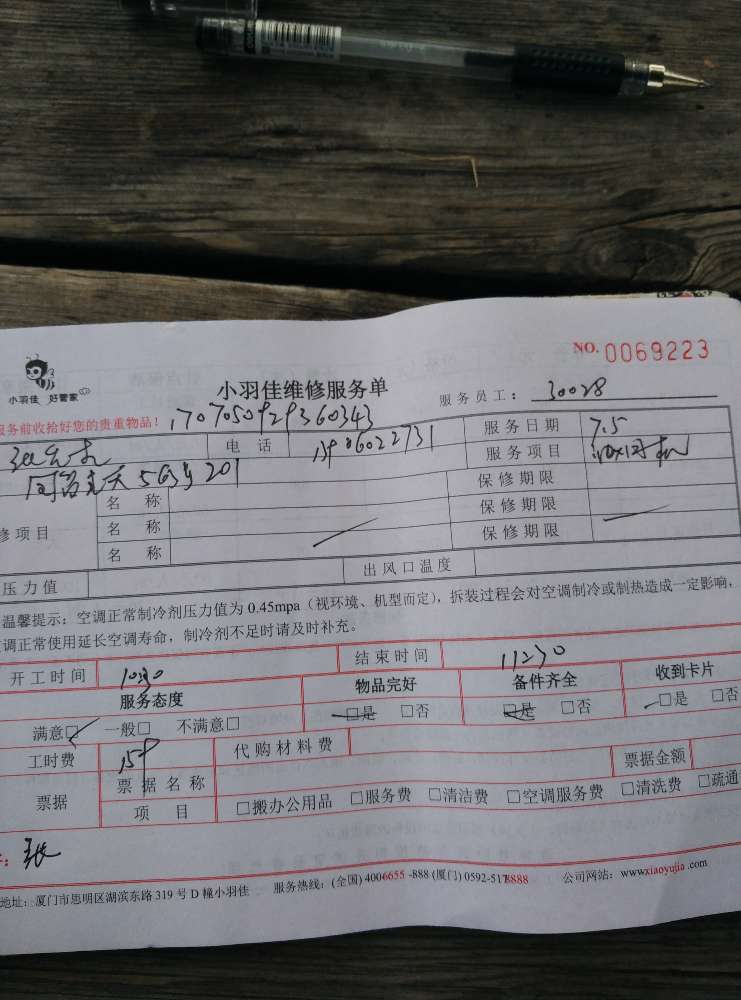 NO. 0069223
小羽佳 好管家
小羽佳维修服务单
服务员工： 30028
服务前收拾好您的贵重物品！ 1707050929360343
电话
服务日期 7.5
服务项目
563号201
名称 保修期限
修项目 名称 保修期限
名称 保修期限
压力值 出风口温度
温馨提示：空调正常制冷剂压力值为 0.45mpa（视环境、机型而定），拆装过程会对空调制冷或制热造成一定影响，
调正常使用延长空调寿命，制冷剂不足时请及时补充。
开工时间 1030 结束时间 11230
服务态度 物品完好 备件齐全 收到卡片
满意□ 一般□ 不满意□ □是 □否 □是 □否 □是 □否
工时费 159 代购材料费
票据 票据名称 票据金额
项目 □搬办公用品 □服务费 □清洁费 □空调服务费 □清洗费 □疏通
：张
地址：厦门市思明区湖滨东路 319 号 D 幢小羽佳 服务热线：(全国) 4006655-888 (厦门) 0592-5178888 公司网站：www.xiaoyujia.com